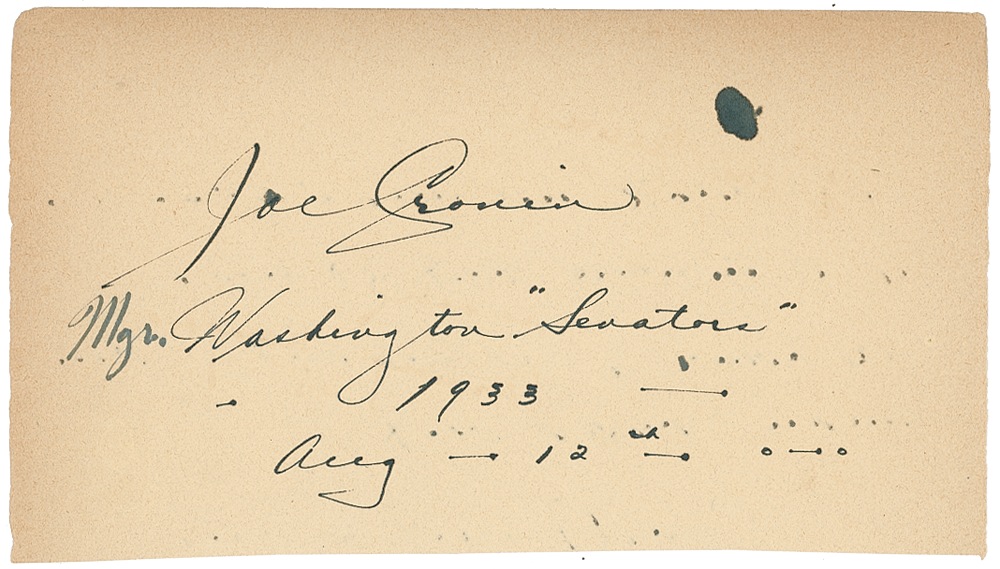 Joe Cronin
Mgr. Washington "Senators"
1933
Aug — 12th —